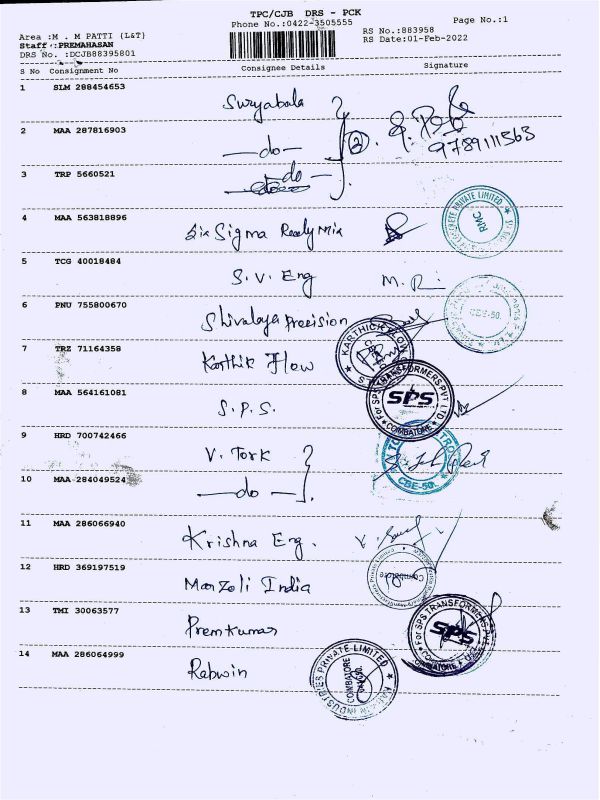 TPC/CJB DRS - PCK
Phone No.:0422-3505555
Page No.:1
Area :M . M PATTI (L&T)
Staff :PREMAHASAN
DRS No. :DCJB88395801
RS No.:883958
RS Date:01-Feb-2022
S No Consignment No Consignee Details Signature
1 SLM 288454653 Suryabala
2 MAA 287816903 —do— 2
9789111563
3 TRP 5660521 do
4 MAA 563818896 Six Sigma Ready Mix
RMC
5 TCG 40018484 S. V. Eng
6 PNU 755800670 Shivalaya Precision
7 TRZ 71164358 Karthik Flow
KARTHICK FLOW
8 MAA 564161081 S. P. S.
For SPS TRANSFORMERS PVT. LTD.
SPS
COIMBATORE
9 HRD 700742466 V. Tork
CBE-50.
10 MAA 284049524 —do—
11 MAA 286066940 Krishna Eng.
12 HRD 369197519 Marzoli India
Coimbatore
13 TMI 30063577 Premkumar
For SPS TRANSFORMERS PVT. LTD.
SPS
COIMBATORE
14 MAA 286064999 Rabwin
INDUSTRIES PRIVATE LIMITED
COIMBATORE